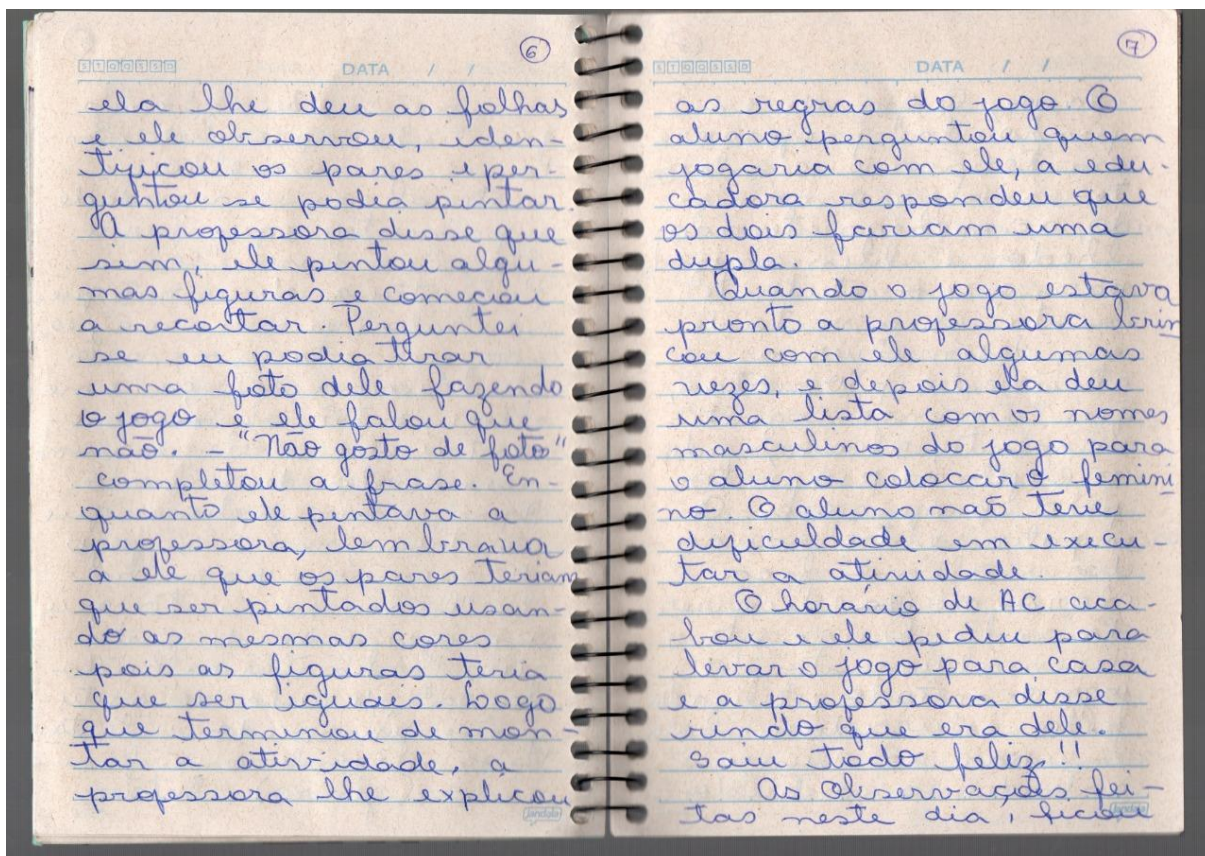 6
STQQSSD
DATA / /
ela lhe deu as folhas
e ele observou, iden-
tificou os pares e per-
guntou se podia pintar.
A professora disse que
sim, ele pintou algu-
mas figuras e começou
a recortar. Perguntei
se eu podia tirar
uma foto dele fazendo
o jogo e ele falou que
não. - "Não gosto de foto"
completou a frase. En-
quanto ele pintava a
professora, lembrava
a ele que os pares teriam
que ser pintados usan-
do as mesmas cores
pois as figuras teria
que ser iguais. Logo
que terminou de mon-
tar a atividade, a
professora lhe explicou
jandaia
7
STQQSSD
DATA / /
as regras do jogo. O
aluno perguntou quem
jogaria com ele, a edu-
cadora respondeu que
os dois fariam uma
dupla.
Quando o jogo estava
pronto a professora brin
cou com ele algumas
vezes, e depois ela deu
uma lista com os nomes
masculinos do jogo para
o aluno colocar o femini
no. O aluno não teve
dificuldade em execu-
tar a atividade.
O horário de AC aca-
bou e ele pediu para
levar o jogo para casa
e a professora disse
rindo que era dele.
Saiu todo feliz!!
As Observações fei-
tas neste dia, ficou
jandaia